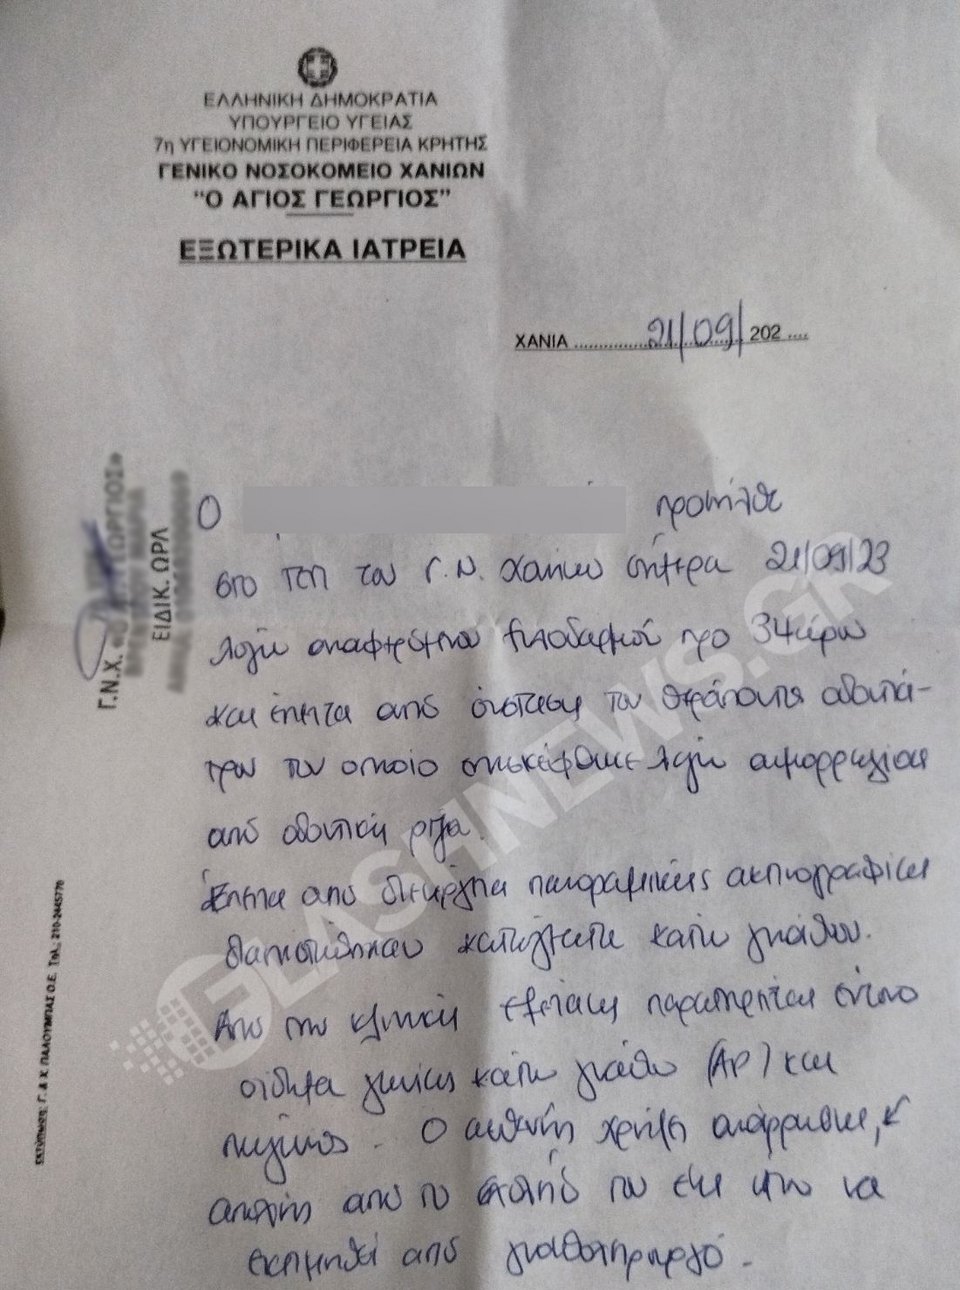 ΕΛΛΗΝΙΚΗ ΔΗΜΟΚΡΑΤΙΑ
ΥΠΟΥΡΓΕΙΟ ΥΓΕΙΑΣ
7η ΥΓΕΙΟΝΟΜΙΚΗ ΠΕΡΙΦΕΡΕΙΑ ΚΡΗΤΗΣ
ΓΕΝΙΚΟ ΝΟΣΟΚΟΜΕΙΟ ΧΑΝΙΩΝ
"Ο ΑΓΙΟΣ ΓΕΩΡΓΙΟΣ"
ΕΞΩΤΕΡΙΚΑ ΙΑΤΡΕΙΑ
ΧΑΝΙΑ ................21/09/ 202 ....
Γ.Ν.Χ.
ΕΙΔΙΚ. ΩΡΛ
Ο προσήλθε
στο ΤΕΠ του Γ.Ν. Χανίων σήμερα 21/09/23
λόγω αναφερόμενου ξυλοδαρμού προ 34ώρου
και έπειτα από σύσταση του θεράποντα οδοντιά-
τρου τον οποίο επισκέφθηκε λόγω αιμορραγίας
από οδοντική ρίζα.
Έπειτα από διενέργεια πανοραμικής ακτινογραφίας
διαπιστώθηκαν κατάγματα κάτω γνάθου.
Από την κλινική εξέταση παρατηρείται έντονο
οίδημα γωνίας κάτω γνάθου (ΑΡ) και
πώγωνος. Ο ασθενής χρήζει ανάρρωσης,
αποχής από το σχολείο του και να
εκτιμηθεί από γναθοχειρουργό.
Εκτύπωση: Γ. & Χ. ΠΑΛΟΥΜΠΑΣ Ο.Ε. Τηλ.: 210-2445778
FLASHNEWS.GR